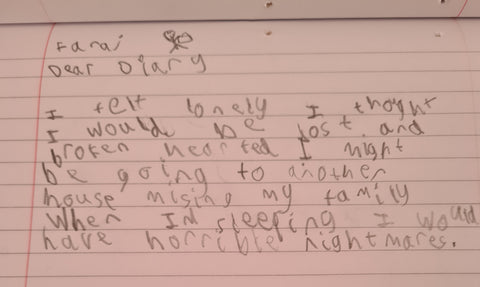 Farai
Dear Diary
I felt lonely I thoght
I would be lost and
broken hearted I might
be going to another
house mising my family
When Im sleeping I would
have horrible nightmares.